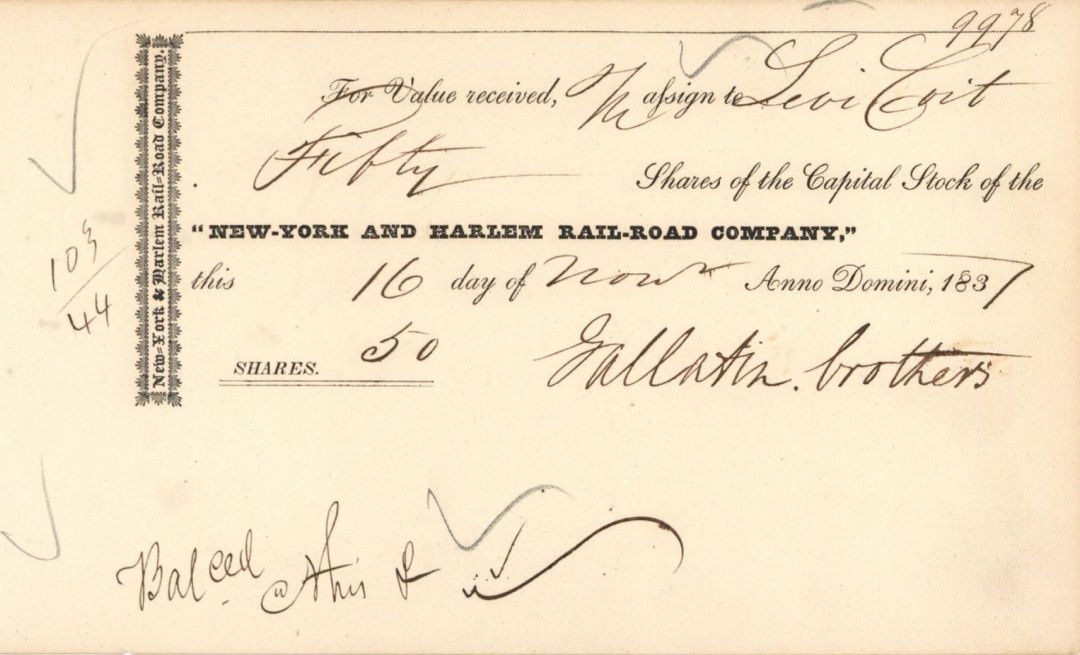 9978
For Value received, We assign to Levi Coit
Fifty
Shares of the Capital Stock of the
"NEW-YORK AND HARLEM RAIL-ROAD COMPANY,"
this 16 day of Novr Anno Domini, 1837
SHARES. 50
Gallatin brothers
New-York & Harlem Rail-Road Company.
103
44
Balced